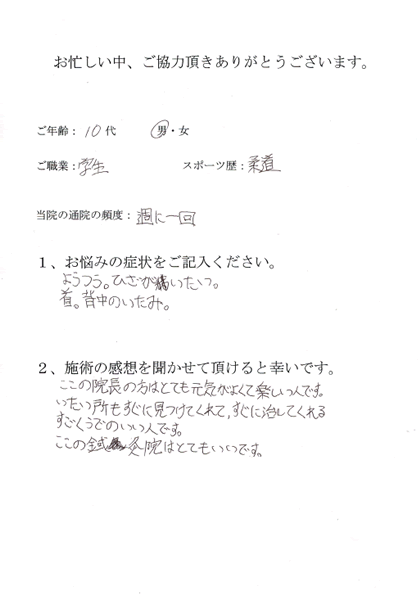 お忙しい中、ご協力頂きありがとうございます。
ご年齢：10代　男・女
ご職業：学生　スポーツ歴：柔道
当院の通院の頻度：週に一回
１、お悩みの症状をご記入ください。
ようつう。ひざが痛いたい。
首。背中のいたみ。
２、施術の感想を聞かせて頂けると幸いです。
ここの院長の方はとても元気がよくて楽しい人です。
いたい所もすぐに見つけてくれて,すぐに治してくれる
すごくうでのいい人です。
ここの鍼灸院はとてもいいです。